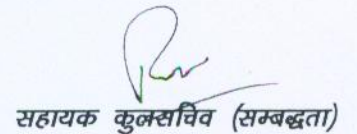 सहायक कुलसचिव (सम्बद्धता)